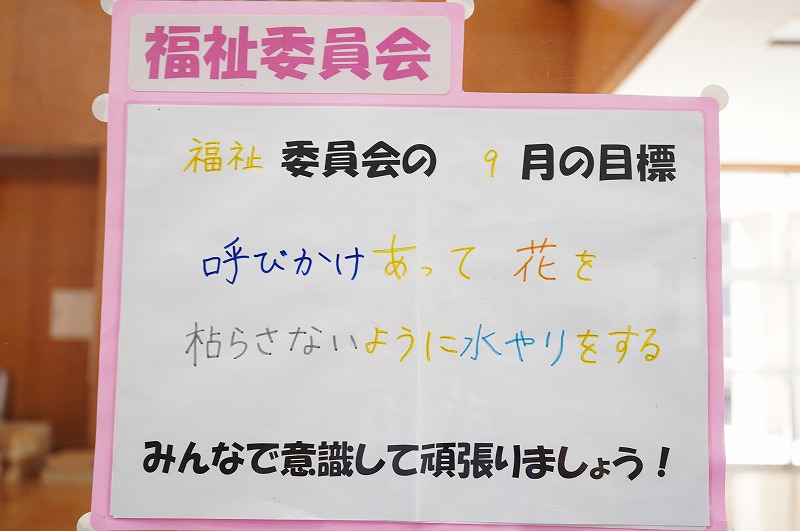 福祉委員会
福祉 委員会の 9 月の目標
呼びかけあって 花を
枯らさないように水やりをする
みんなで意識して頑張りましょう！